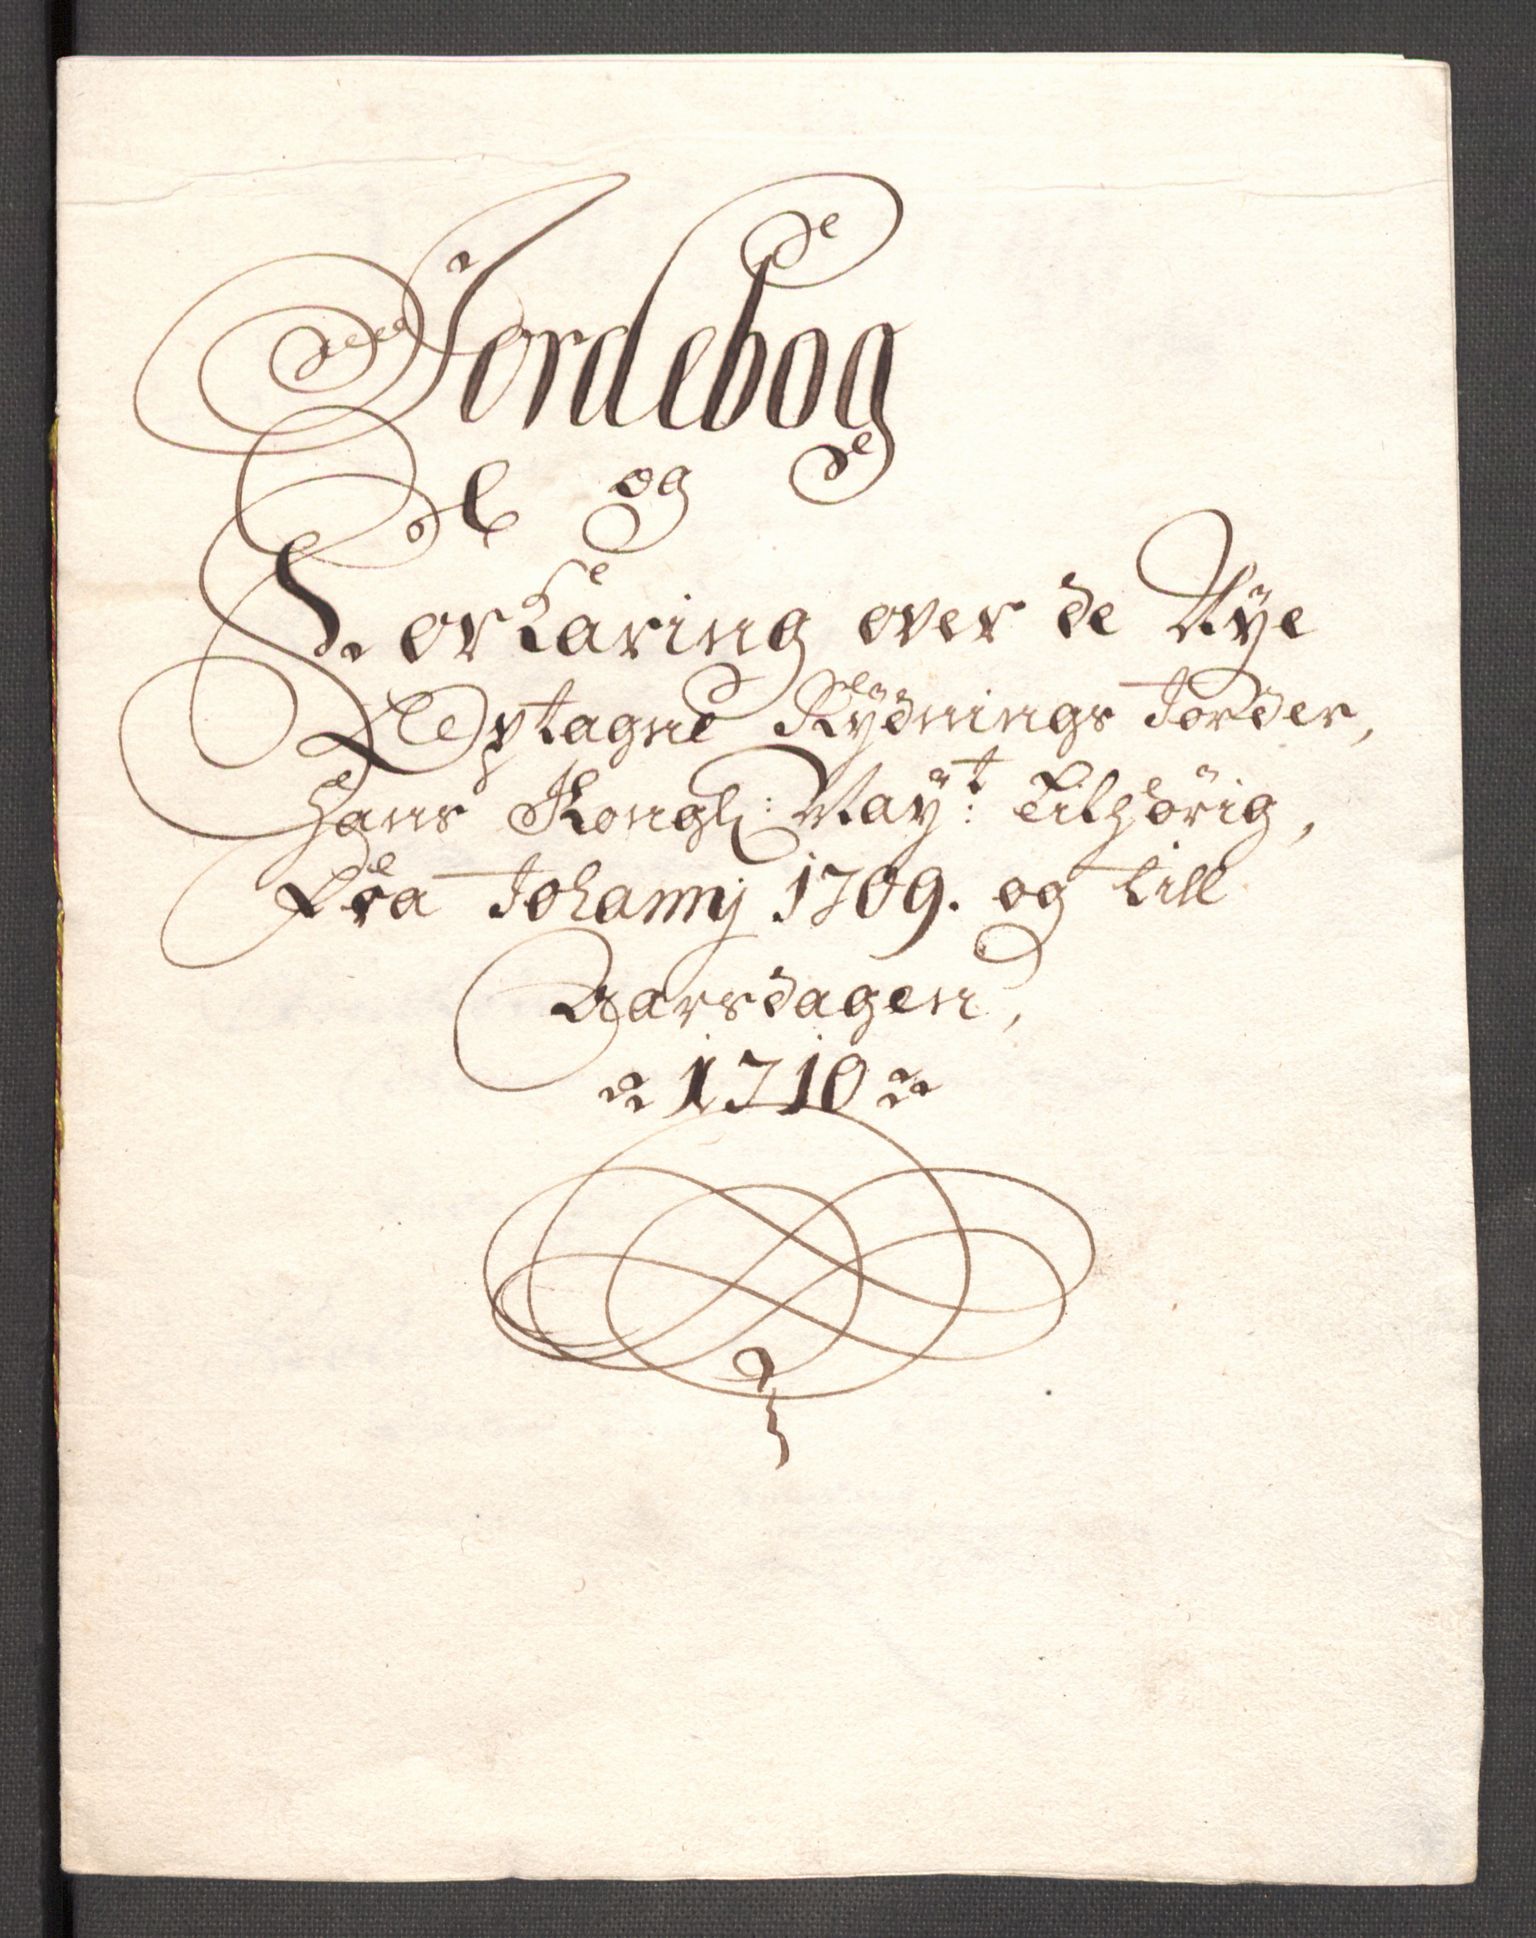 Jordebog
og
Forklaring over de Nye
Optagne Rÿdnings Jorder,
Hans Kongl: Maÿt: Tilhörig,
Fra Johannj 1709. og till
Aarsdagen,
1710